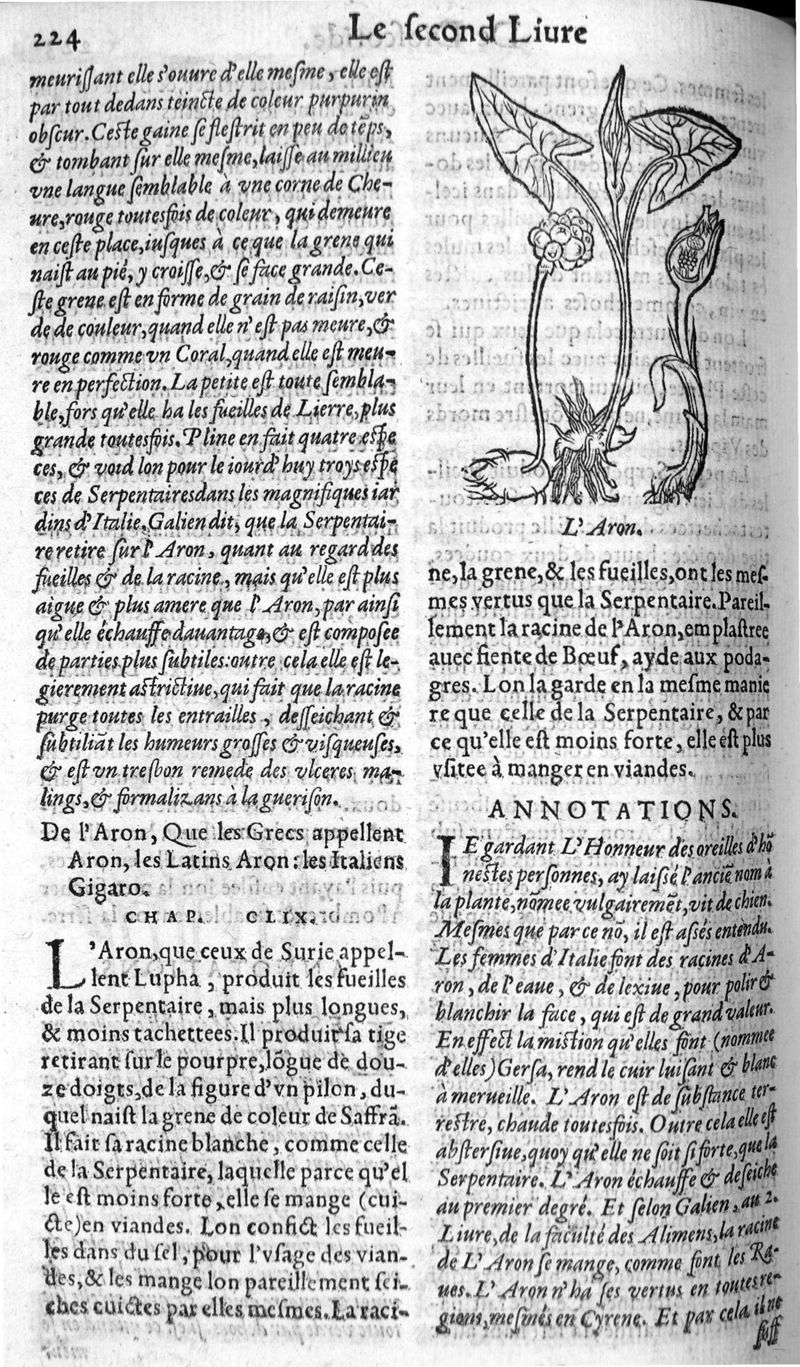 224
Le ſecond Liure
meuriſſant elle s'ouure d'elle meſme, elle eſt
par tout dedans teincte de coleur purpurin
obſcur. Ceſte gaine ſe fleſtrit en peu de tēps,
& tombant ſur elle meſme, laiſſe au millieu
vne langue ſemblable à vne corne de Che-
ure, rouge toutesfois de coleur, qui demeure
en ceſte place, iuſques à ce que la grene qui
naiſt au pié, y croiſſe, & ſe face grande. Ce-
ſte grene eſt en forme de grain de raiſin, ver
de de couleur, quand elle n'eſt pas meure, &
rouge comme vn Coral, quand elle eſt meu-
re en perfection. La petite eſt toute ſembla-
ble, fors qu'elle ha les fueilles de Lierre, plus
grande toutesfois. Pline en fait quatre eſpe
ces, & void lon pour le iourd'huy troys eſpe
ces de Serpentaires dans les magnifiques iar
dins d'Italie. Galien dit, que la Serpentai-
re retire ſur l'Aron, quant au regard des
fueilles & de la racine, mais qu'elle eſt plus
aigue & plus amere que l'Aron, par ainſi
qu'elle échauffe dauantage, & eſt compoſee
de parties plus ſubtiles: outre cela elle eſt le-
gierement aſtrictiue, qui fait que la racine
purge toutes les entrailles, deſſeichant &
ſubtiliāt les humeurs groſſes & viſqueuſes,
& eſt vn treſbon remede des vlceres ma-
lings, & formalizans à la gueriſon.
De l'Aron, Que les Grecs appellent
Aron, les Latins Aron: les Italiens
Gigaro.
CHAP. CLIX.
L'Aron, que ceux de Surie appel-
lent Lupha, produit les fueilles
de la Serpentaire, mais plus longues,
& moins tachettees. Il produit ſa tige
retirant ſur le pourpre, lōgue de dou-
ze doigts, de la figure d'vn pilon, du-
quel naiſt la grene de coleur de Saffrā.
Il fait ſa racine blanche, comme celle
de la Serpentaire, laquelle parce qu'el
le eſt moins forte, elle ſe mange (cui-
cte) en viandes. Lon confict les fueil-
les dans du ſel, pour l'vſage des vian-
des, & les mange lon pareillement ſei-
ches cuictes par elles meſmes. La raci-
L'Aron.
ne, la grene, & les fueilles, ont les meſ-
mes vertus que la Serpentaire. Pareil-
lement la racine de l'Aron, emplaſtree
auec fiente de Bœuf, ayde aux poda-
gres. Lon la garde en la meſme manie
re que celle de la Serpentaire, & par
ce qu'elle eſt moins forte, elle eſt plus
vſitee à manger en viandes.
ANNOTATIONS.
REgardant L'Honneur des oreilles d'hō
neſtes perſonnes, ay laiſſé l'anciē nom à
la plante, nōmee vulgairemēt, vit de chien.
Meſmes que par ce nō, il eſt aſſés entendu.
Les femmes d'Italie font des racines d'A-
ron, de l'eaue, & de lexiue, pour polir &
blanchir la face, qui eſt de grand valeur.
En effect la miſtion qu'elles font (nommee
d'elles) Gerſa, rend le cuir luiſant & blanc
à merueille. L'Aron eſt de ſubſtance ter-
reſtre, chaude toutesfois. Outre cela elle eſt
abſterſiue, quoy qu'elle ne ſoit ſi forte, que la
Serpentaire. L'Aron échauffe & deſeiche
au premier degré. Et ſelon Galien, au 2.
Liure, de la faculté des Alimens, la racine
de L'Aron ſe mange, comme font les Ra-
ues. L'Aron n'ha ſes vertus en toutes re-
gions, meſmes en Cyrene. Et par cela il ne